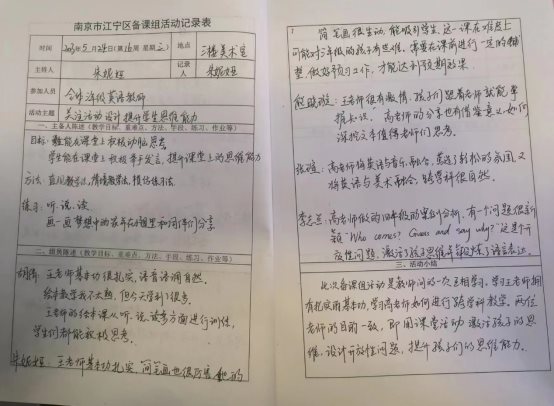 南京市江宁区备课组活动记录表
时间 2023年5月24日(第15周 星期三) 地点 3楼美术室
主持人 朱妮妲 记录人 朱妮妲
参加人员 全体三年级英语教师
活动主题 关注活动设计 提升学生思维能力
一、主备人陈述(教学目标、重难点、方法、手段、练习、作业等)
目标:能在课堂上积极动脑思考
学生能在课堂上积极举手发言,提升课堂上的思维能力
方法:直观教学法,情境教学法,操练练习法
练习:听、说、读
画一画梦想中的 并和同伴们分享
二、组员陈述(教学目标、重难点、方法、手段、练习、作业等)
王老师基本功很扎实,语音语调自然,
绘本教学我不太熟,但今天学到了很多。
王老师的绘本课从听、说、读多方面进行训练,
学生们都能积极思考。
朱妮妲:王老师基本功扎实,简笔画也很厉害,她的
简笔画很生动,能吸引学生,这一课在难度上
可能对三年级的孩子有些难,需要在课前进行一定的调
整,做好预习工作,才能达到预期效果。
王老师很有激情,孩子们跟着老师就能掌
握知识。高老师的分享也有借鉴意义,如何
深挖文本值得老师们思考。
高老师将英语与音乐融合,营造了轻松的氛围,又
将英语与美术融合,跨学科很自然。
高老师做的四年级的案例分析,有一个问题很新
颖“Who comes? Guess and say why?”这是个开
放性问题,激活了孩子思维并锻炼了语言表达。
三、活动小结
此次备课组活动是教师间的一次互相学习。学习王老师拥
有扎实的基本功,学习高老师如何进行跨学科教学。两位
老师的目的一致,即用课堂活动激活孩子的思
维,设计开放性问题,提升孩子们的思维能力。